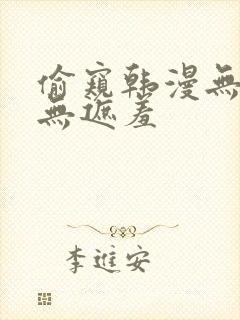 偷窺韩漫無
無遮羞
李進安